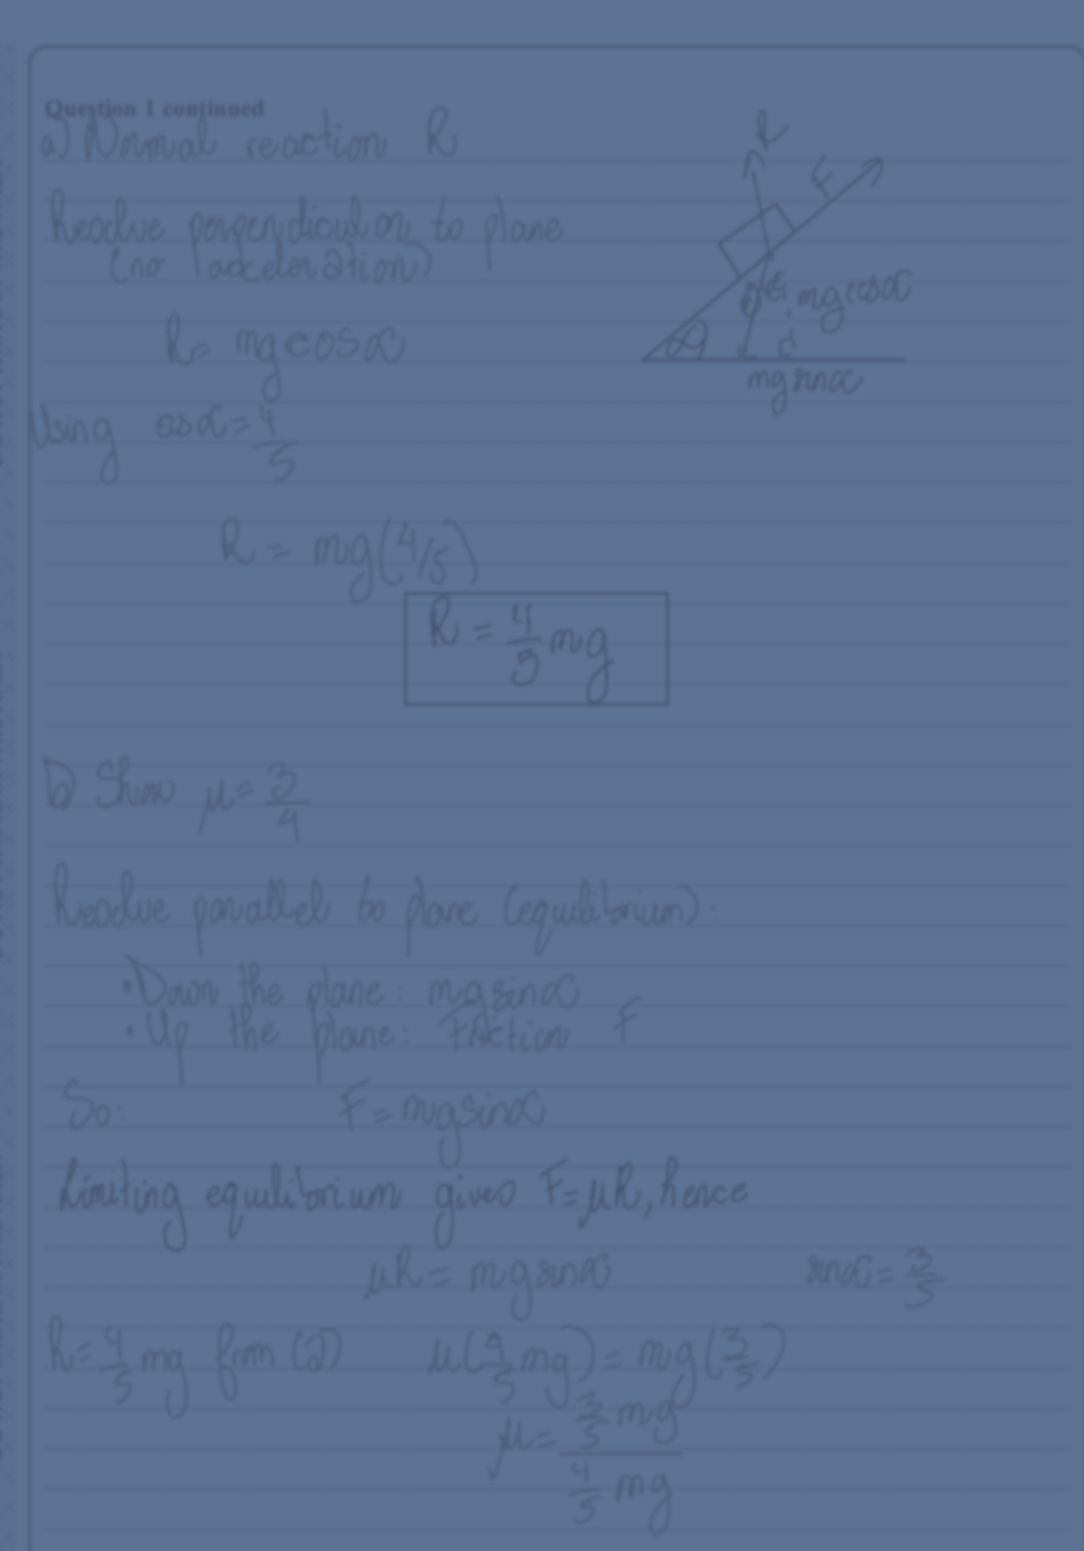 Question 1 continued
a) Normal reaction R
R
F
Resolve perpendicular to plane
(no acceleration)
mgcosα
R= mgcosα
α
mg sinα
Using cosα=4/5
R = mg(4/5)
R = 4/5 mg
b) Show μ=3/4
Resolve parallel to plane (equilibrium):
•Down the plane: mgsinα
•Up the plane: Friction F
So: F=mgsinα
Limiting equilibrium gives F=μR, hence
μR= mgsinα sinα=3/5
R=4/5 mg from (a) μ(4/5 mg)= mg(3/5)
μ= 3/5 mg
4/5 mg